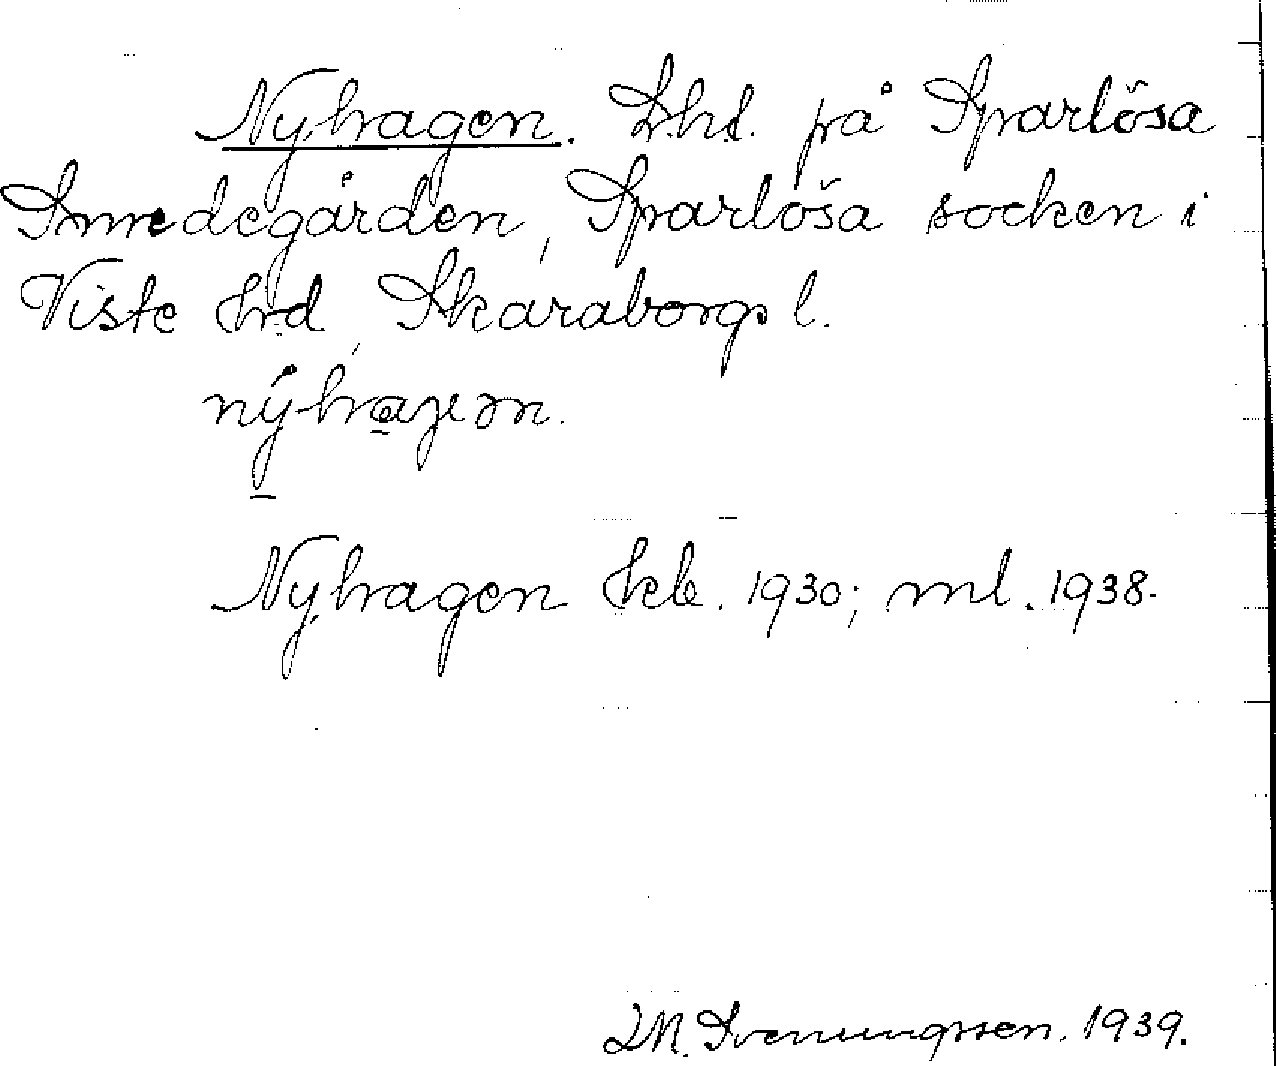 Nyhagen. Lht. på Sparlösa
Smedegården, Sparlösa socken i
Viste hrd, Skaraborgs l.
nýhagen.
Nyhagen hkb. 1930; ml. 1938.
I.M. Svenungsson. 1939.